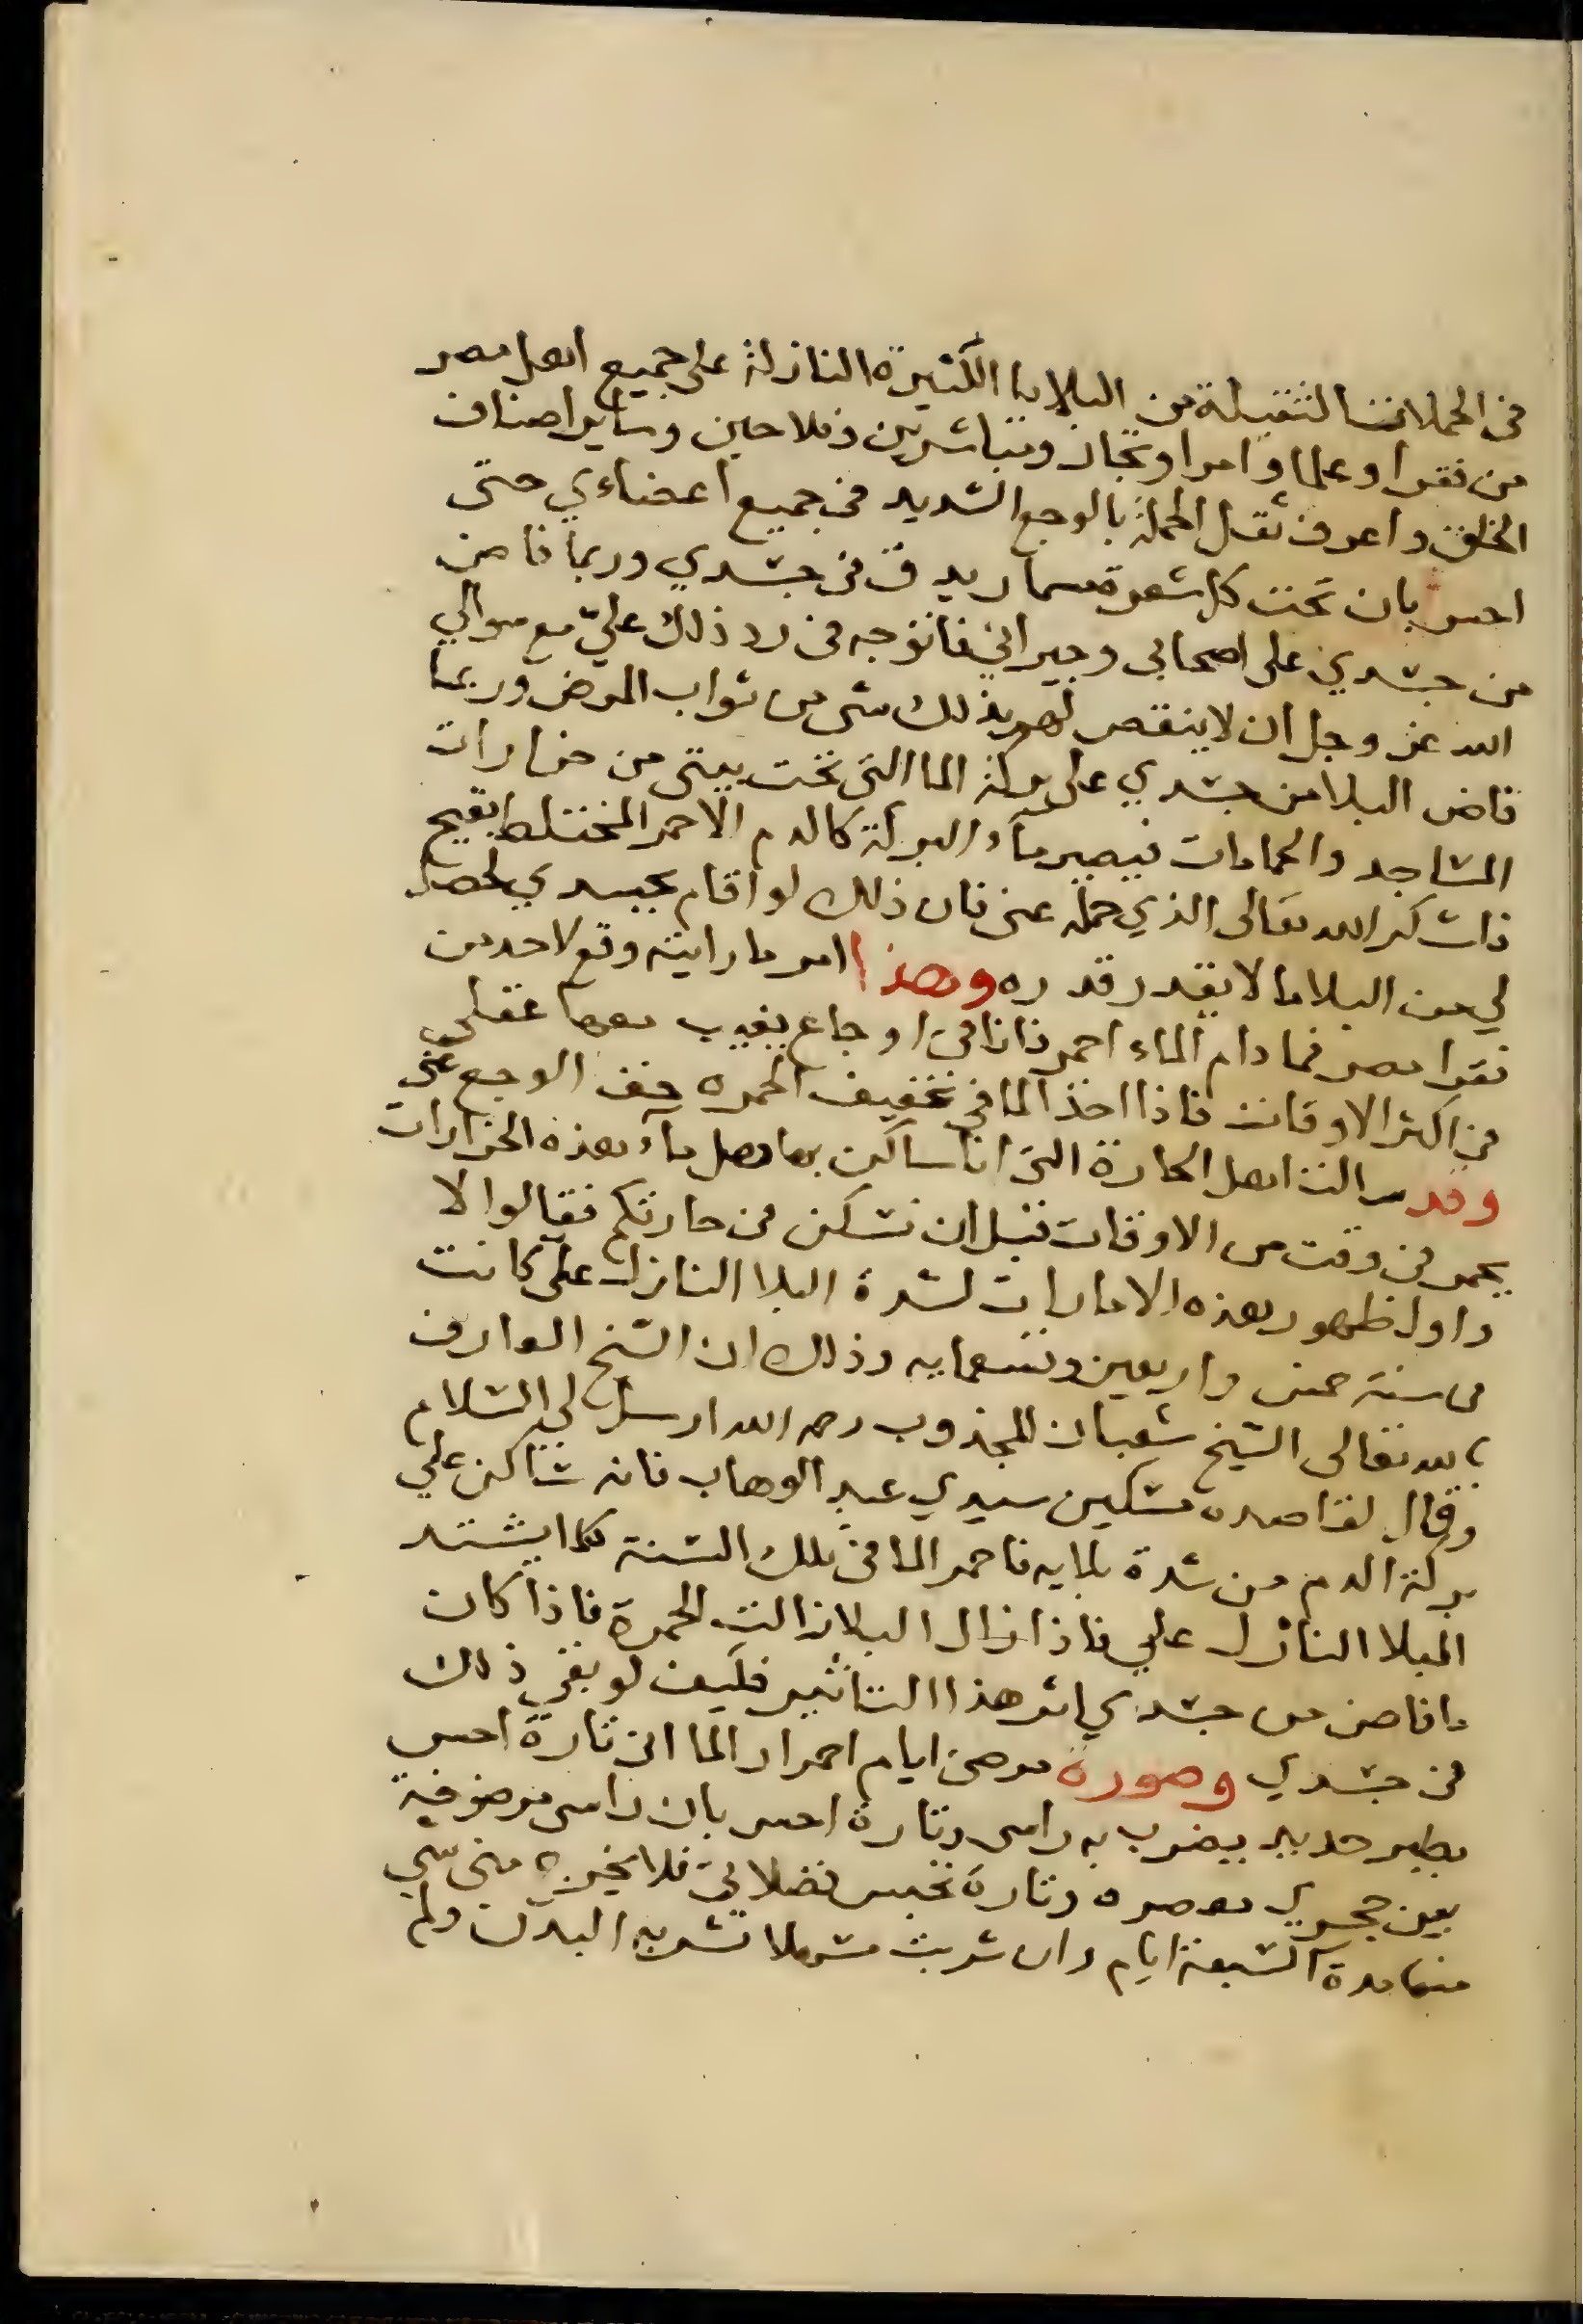 في الحملات الثقيلة من البلايا الكثيرة النازلة على جميع اهل مصر
من فقرا وعلما وامرا وتجار ومباشرين وفلاحين وساير اصناف
الخلق واعرف ثقل الحملة بالوجع الشديد في جميع اعضاءي حتى
احس بان تحت كل شعرة مسمار يدق في جسدي وربما فاض
من جسدي على اصحابي وجيراني فاتوجه في رد ذلك عليّ مع سوالي
الله عز وجل ان لا ينقص لهم بذلك شي من ثواب المرض وربما
فاض البلا من جسدي على بركة الما التي تحت بيتي من خرارات
المساجد والحمامات فيصير ماء البركة كالدم الاحمر المختلط بقيح
فاشكر الله تعالى الذي حمله عني فان ذلك لو اقام بجسدي لحصل
لي من البلا ما لا يقدر قدره وهذا امر ما رايته وقع لاحد من
فقرا مصر فما دام الماء احمر فانا في اوجاع يغيب معها عقلي
في اكثر الاوقات فاذا اخذ الما في تخفيف الحمره خف الوجع عني
وقد سالت اهل الحارة التي انا ساكن بها هل ماء هذه الخرارات
يحمر في وقت من الاوقات قبل ان نسكن في حارتكم فقالوا لا
واول ظهور هذه الامارات لشدة البلا النازل علي كانت
في سنة خمس واربعين وتسعمايه وذلك ان الشيخ العارف
بالله تعالى الشيخ شعبان المجذوب رحمه الله ارسل لي السلام
وقال لقاصده مسكين سيدي عبد الوهاب فانه ساكن علي
بركة الدم من شدة بلايه فاحمر الما في تلك السنة كلما يشتد
البلا النازل علي فاذا زال البلا زالت الحمرة فاذا كان
ما فاض من جسدي اثر هذا التاثير فكيف لو بقي ذلك
في جسدي وصورة مرضي ايام احمرار الما اني تارة احس
بطير حديد يضرب به راسي وتارة احس بان راسي موضوعة
بين حجري معصره وتارة تحبس فضلاتي فلا يخرج مني شي
منها مدة السبعة ايام وان شربت مسهلا تشربه البدن ولم